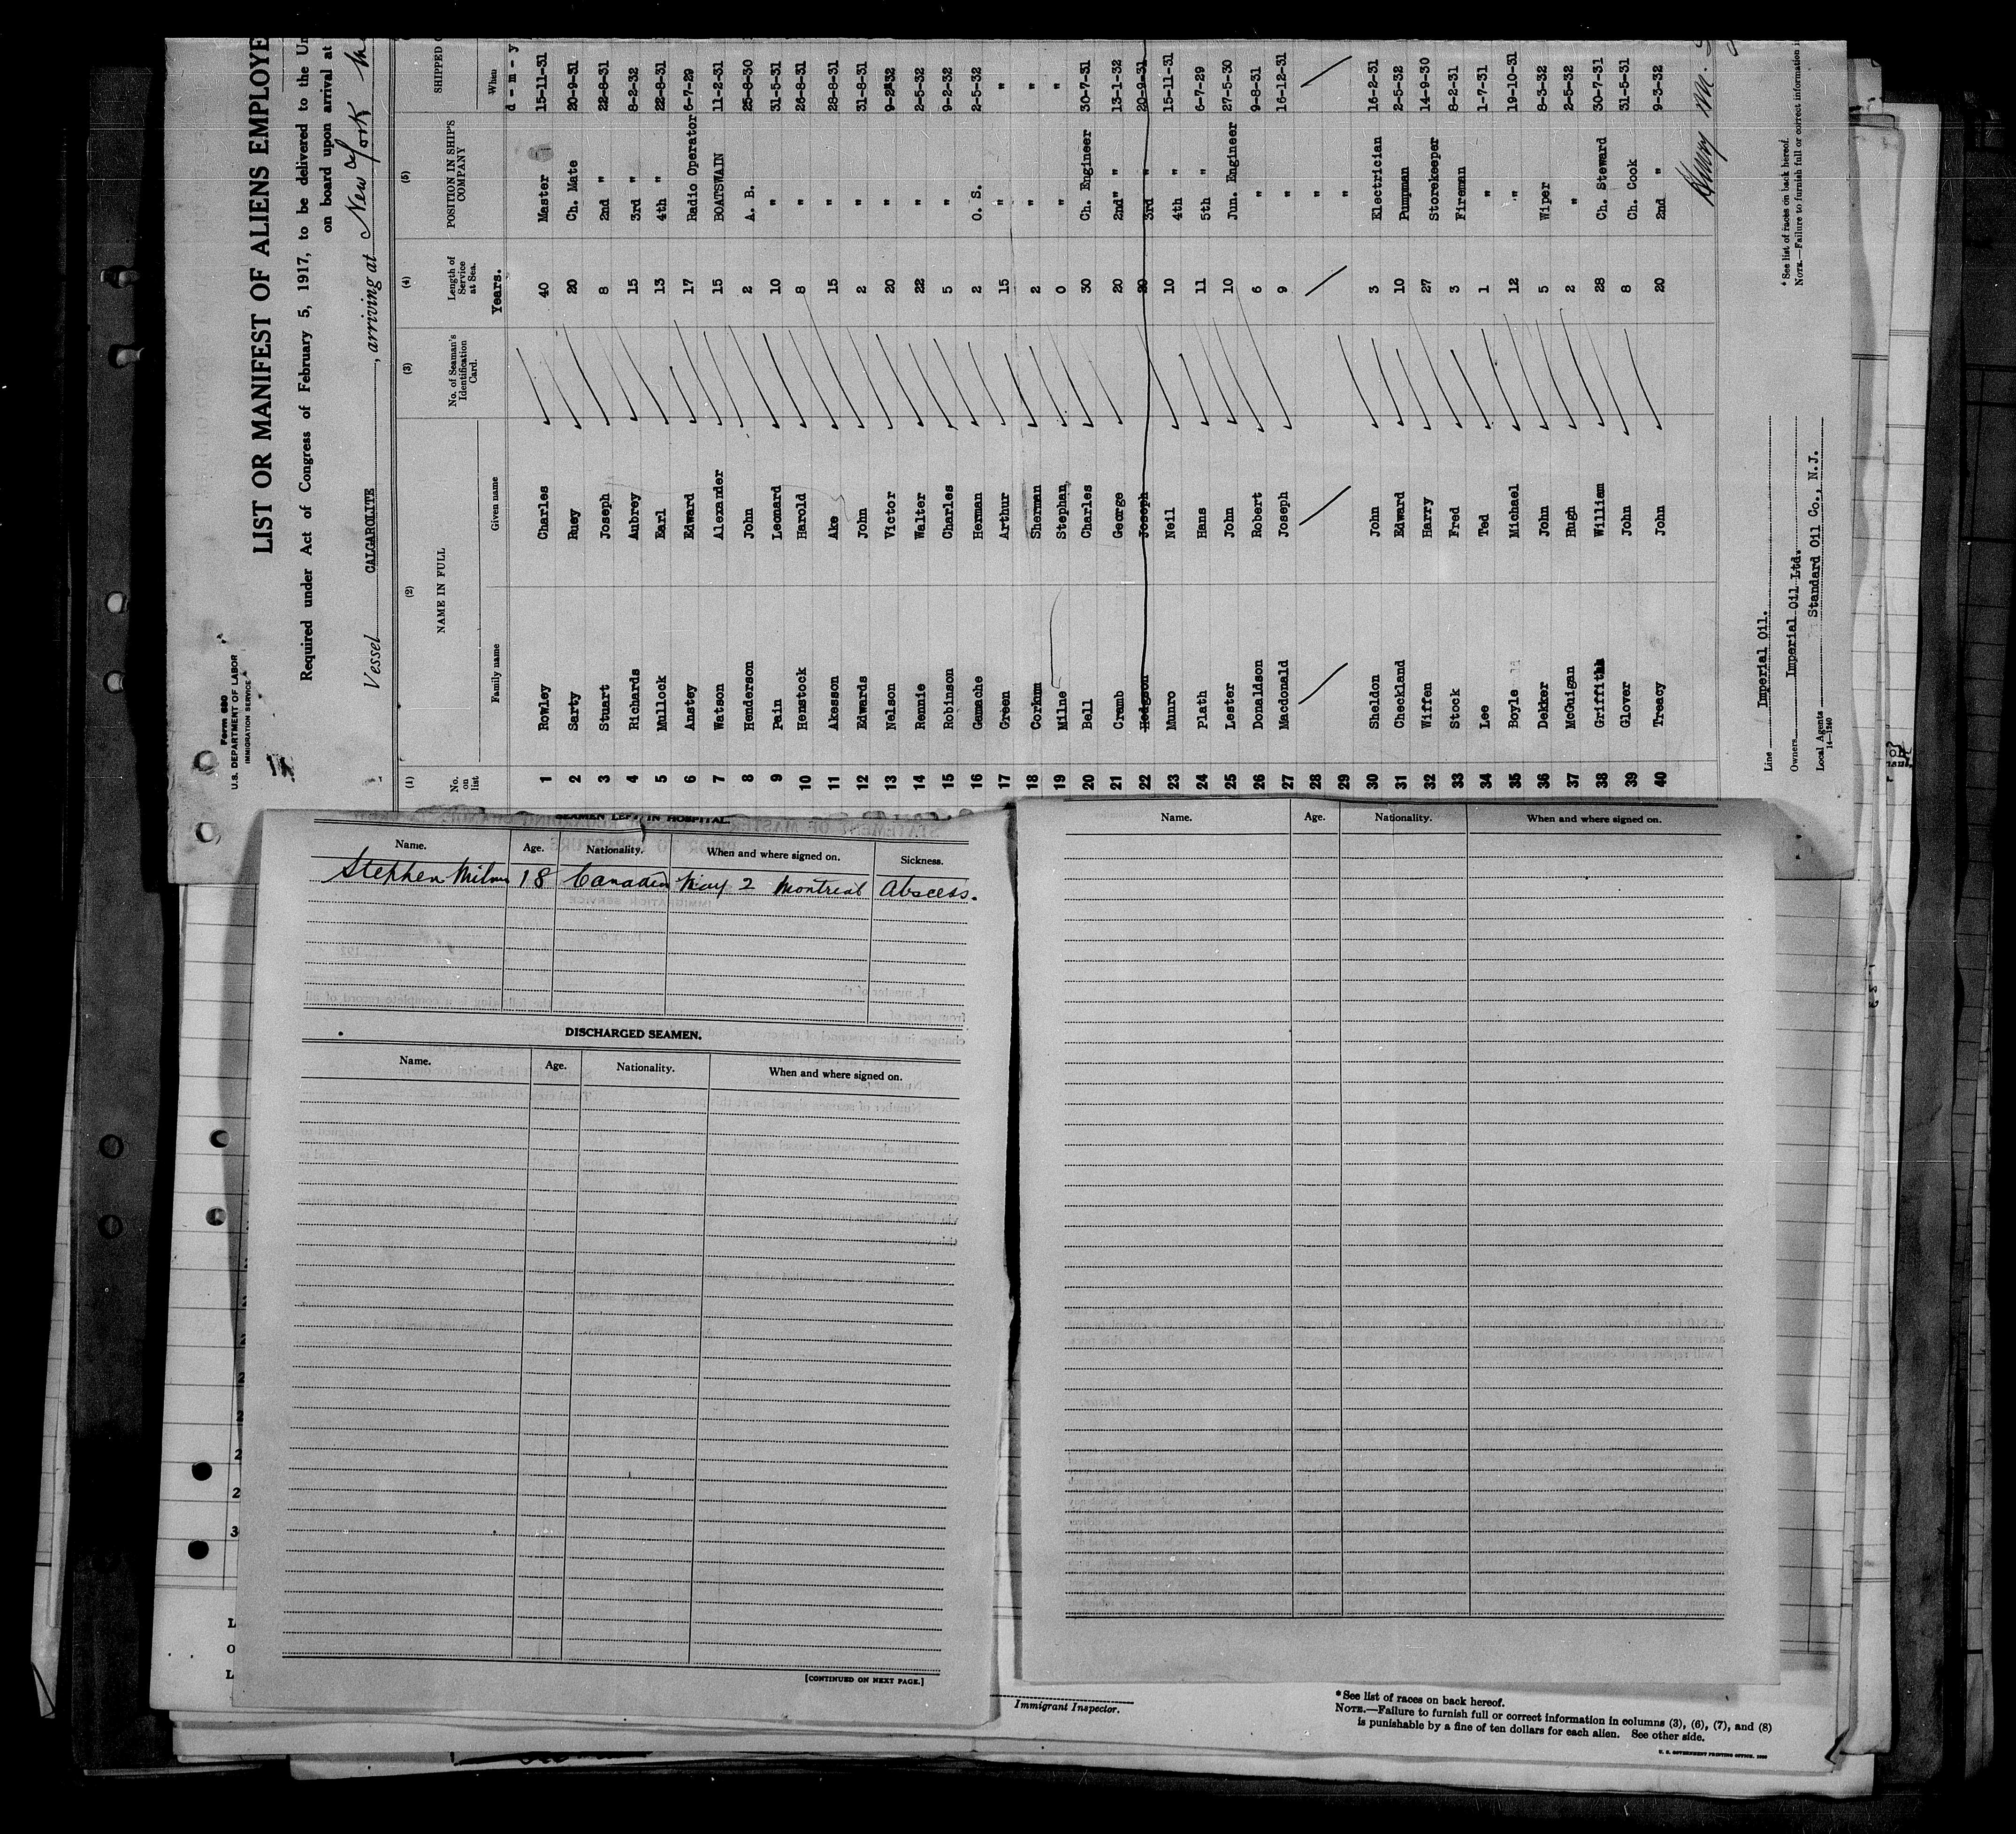 Form 680
U.S. DEPARTMENT OF LABOR
IMMIGRATION SERVICE
LIST OR MANIFEST OF ALIENS EMPLOYE
Required under Act of Congress of February 5, 1917, to be delivered to the Un
on board upon arrival at
Vessel CALGAROLITE, arriving at New York
(1) (2) (3) (4) (5)
No. on list NAME IN FULL No. of Seaman's Identification Card. Length of Service at Sea. POSITION IN SHIP'S COMPANY SHIPPED
Family name Given name Years. When
d - m - y
1 Rowley Charles 40 Master 15-11-31
2 Sarty Ruey 20 Ch. Mate 20-9-31
3 Stuart Joseph 8 2nd " 22-8-31
4 Richards Aubrey 15 3rd " 8-2-32
5 Mullock Earl 13 4th " 22-8-31
6 Anstey Edward 17 Radio Operator 6-7-29
7 Watson Alexander 15 BOATSWAIN 11-2-31
8 Henderson John 2 A. B. 25-8-30
9 Pain Leonard 10 " 31-5-31
10 Henstock Harold 8 " 26-8-31
11 Akesson Ake 15 " 28-8-31
12 Edwards John 2 " 31-8-31
13 Nelson Victor 20 " 9-2-32
14 Rennie Walter 22 " 2-5-32
15 Robinson Charles 5 " 9-2-32
16 Gamache Herman 2 O. S. 2-5-32
17 Green Arthur 15 " "
18 Corkum Sherman 2 " "
19 Milne Stephan 0 " "
20 Bell Charles 30 Ch. Engineer 30-7-31
21 Cramb George 20 2nd " 13-1-32
22 Hodgson Joseph 20 3rd " 20-9-31
23 Munro Neil 10 4th " 15-11-31
24 Plath Hans 11 5th " 6-7-29
25 Lester John 10 Jun. Engineer 27-5-30
26 Donaldson Robert 6 " 9-8-31
27 Macdonald Joseph 9 " 16-12-31
28 "
29 "
30 Sheldon John 3 Electrician 16-2-31
31 Checkland Edward 10 Pumpman 2-5-32
32 Wiffen Harry 27 Storekeeper 14-9-30
33 Stock Fred 3 Fireman 8-2-31
34 Lee Ted 1 " 1-7-31
35 Boyle Michael 12 " 19-10-31
36 Dekker John 5 Wiper 8-3-32
37 McGuigan Hugh 2 " 2-5-32
38 Griffith William 28 Ch. Steward 30-7-31
39 Glover John 8 Ch. Cook 31-5-31
40 Treacy John 20 2nd " 9-3-32
Line Imperial Oil.
Owners Imperial Oil Ltd.
Local Agents Standard Oil Co., N.J.
14-1240
* See list of races on back hereof.
NOTE.—Failure to furnish full or correct information
SEAMEN LEFT IN HOSPITAL.
Name. Age. Nationality. When and where signed on. Sickness.
Stephen Milne 18 Canadian May 2 Montreal Abscess.
DISCHARGED SEAMEN.
Name. Age. Nationality. When and where signed on.
[CONTINUED ON NEXT PAGE.]
Name. Age. Nationality. When and where signed on.
Immigrant Inspector.
* See list of races on back hereof.
NOTE.—Failure to furnish full or correct information in columns (3), (6), (7), and (8)
is punishable by a fine of ten dollars for each alien. See other side.
U. S. GOVERNMENT PRINTING OFFICE